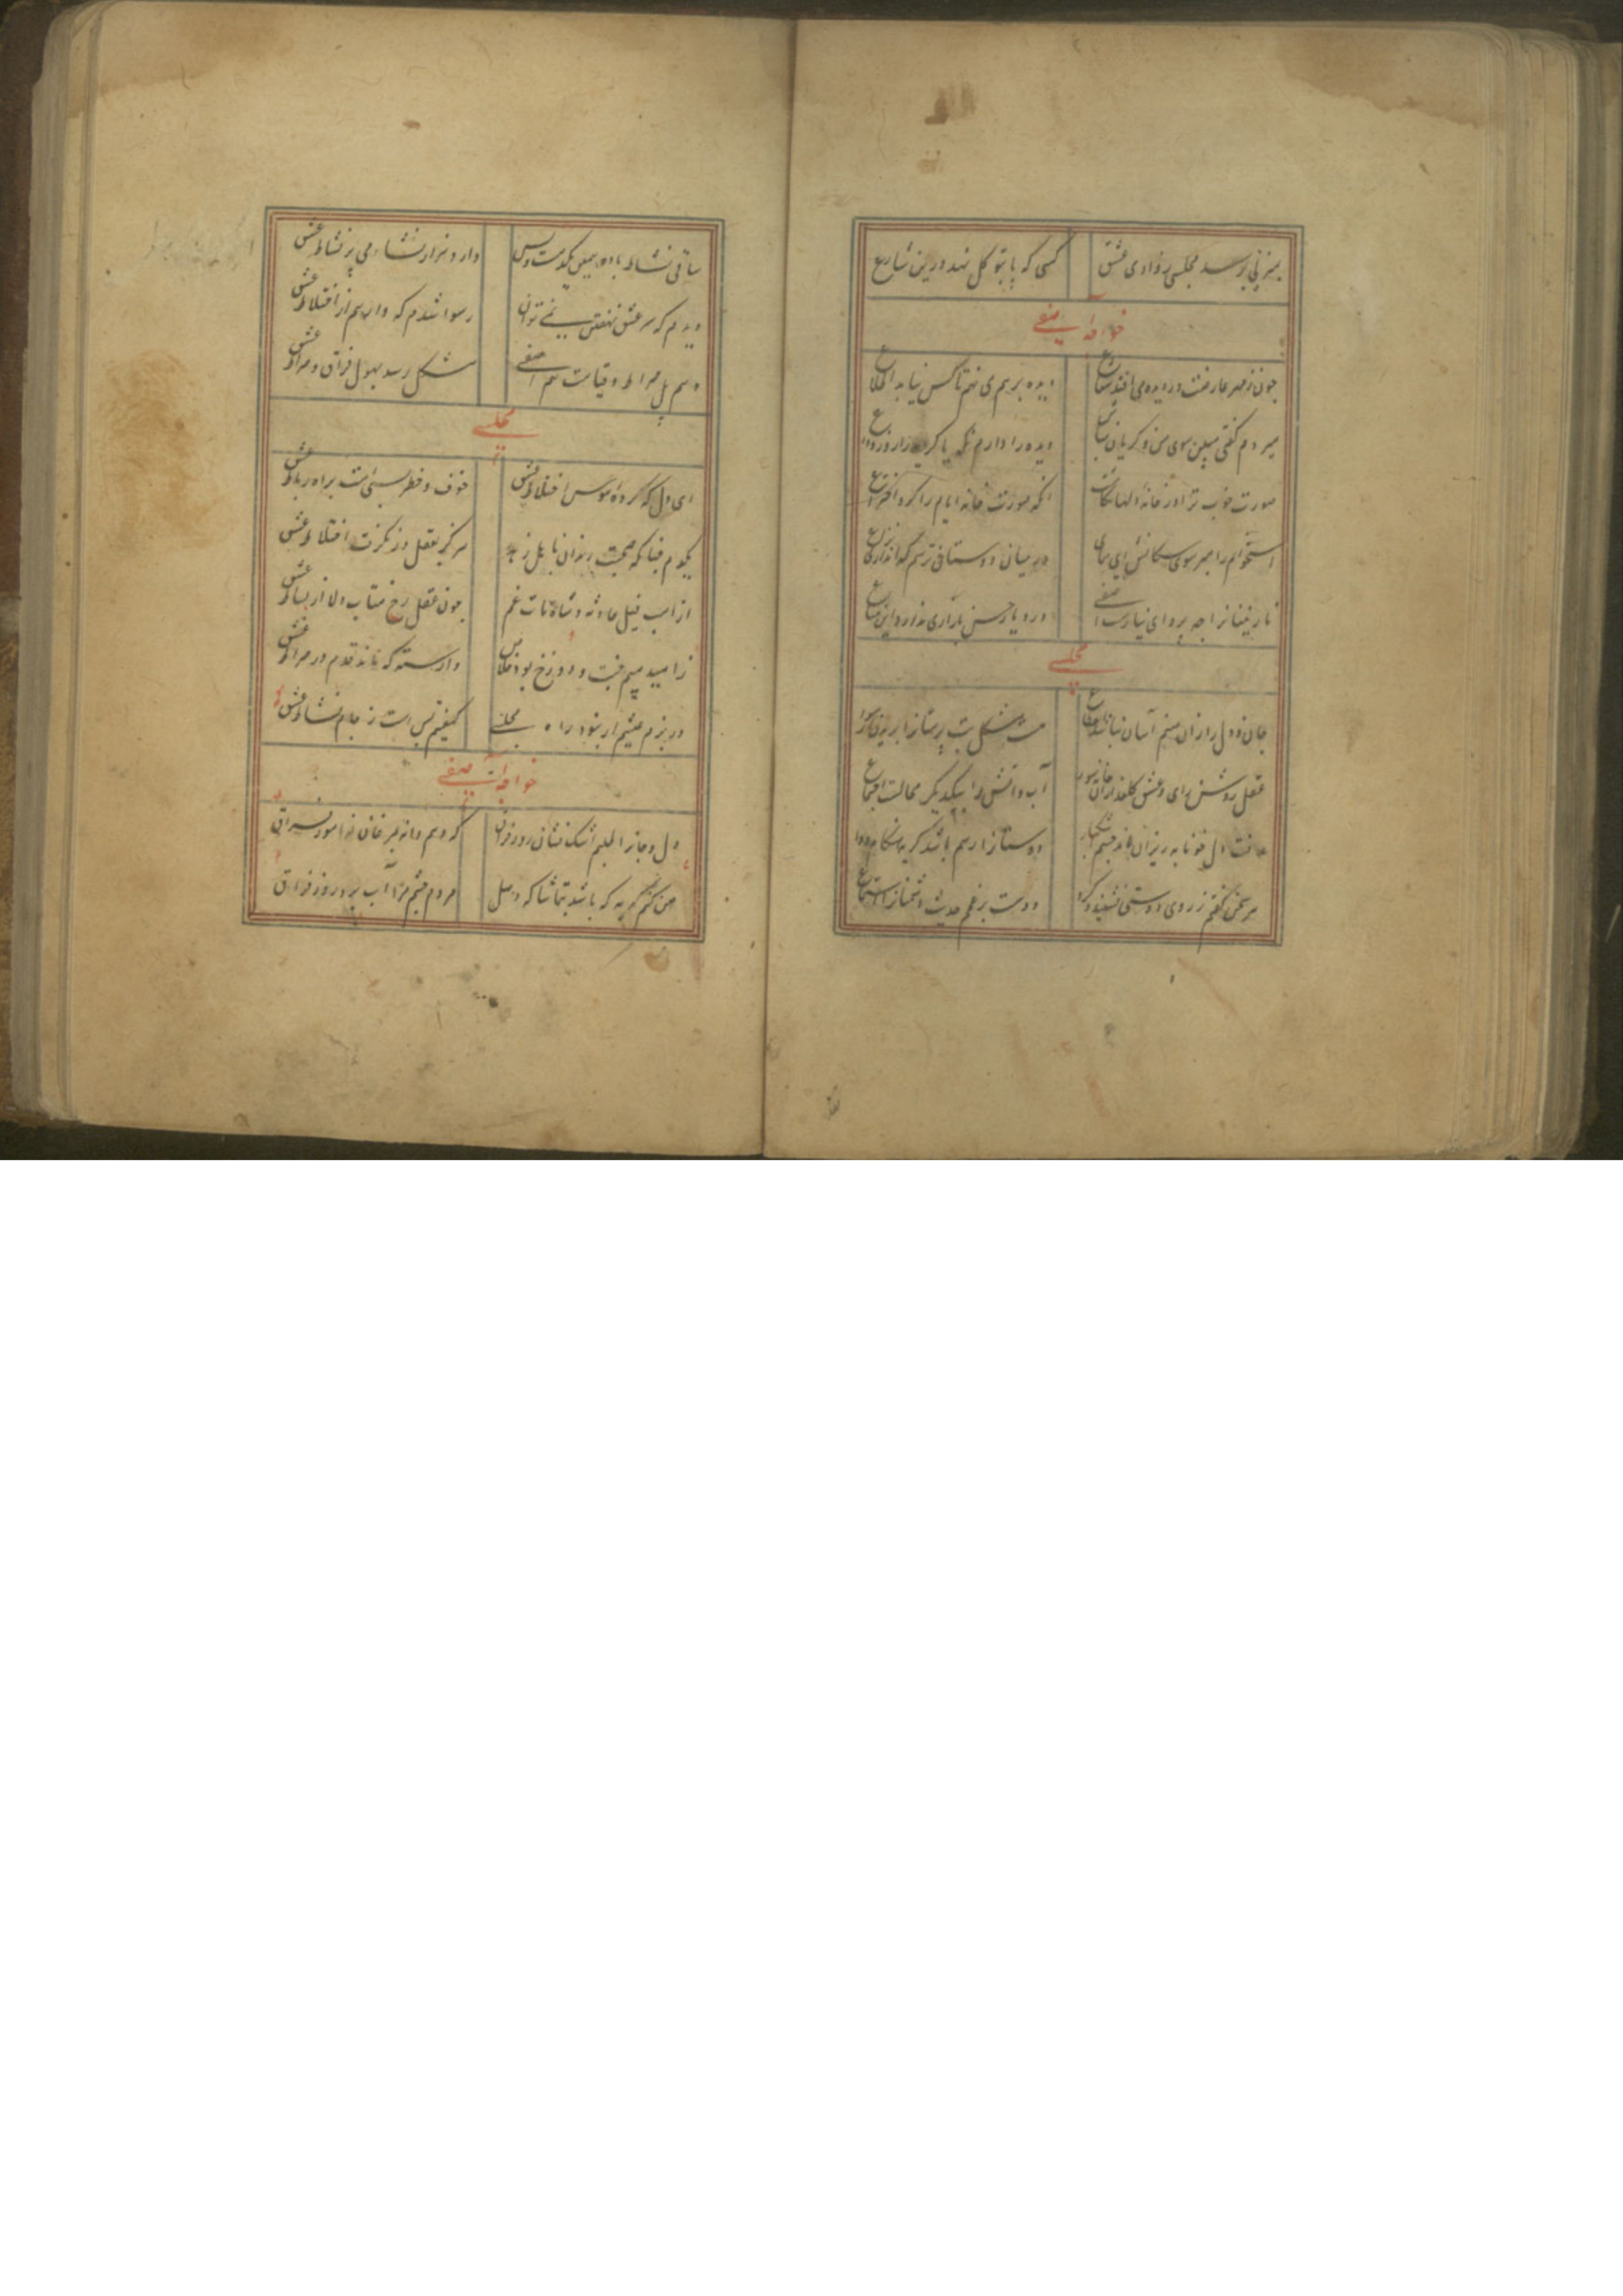 بمنزلی برسد مجلسی زوادی عشق کسی که پا بتوکل نهد درین شارع
خواجه آصفی
چون ز مهر عارضت در دیده می افتد شعاع دیده بر هم می نهم تا کس نیابد اطلاع
میردم گفتی مبین سوی من و گریان دیده را دارم نگه یا گریه زار وداع
صورت خوب ترا در خانه الهاست آنکه صورت خانه ایام را کرد اختراع
استخوانم را مبر سوی سگانش ای همای در میان دوستان می ترسم که اندازی نزاع
نازنینانرا چه پروای نیازست آصفی در دیار حسن بازاری ندارد این متاع
مجلسی
جان و دل را زان صنم آسان نباشد انقطاع هست مشکل بت پرستانرا بریدن
عقل روشن رای و عشق آب و آتش را بیکدیگر محالست اجتماع
رفت دل خونابه ریزان ماند چشم اشکبار دوستانرا رسم باشد گریه هنگام وداع
هر سخن گفتم ز روی دوستی نشنید و کرد دوست بر رغم حدیث دشمنان استماع
ساقی نشاط باده همین یکدمست و بس دارد هزار نشاء می پر نشاط عشق
دیدم که سر عشق نهفتن نمی توان رسوا شدم که داند هم از اختلاط عشق
وهم پل صراط و قیامت هم آصفی مشکل رسد بهول فراق و صراط عشق
مجلسی
ای دل که کرده هوس اختلاط عشق خوف و خطر بسی است براه رباط عشق
یکدم فنا که صحبت رندان نا اهل زهد هرگز بعقل در نگرفت اختلاط عشق
از اسب فیل حادثه و شاه مات غم چون عقل رخ متاب دلا از بساط عشق
ز امید و بیم جنت و دوزخ بود خلاص وارسته که ماند قدم در صراط عشق
در بزم عیشم ار نبود راه مجلسی کیفیتم بس است ز جام نشاط عشق
خواجه آصفی
دل و جانرا طلبم اشک فشان روز فراق که دهم دانه بمرغان نوآموز فراق
من نکنم گریه که باشد بتماشا که وصل مردم چشم مرا آب برد روز فراق